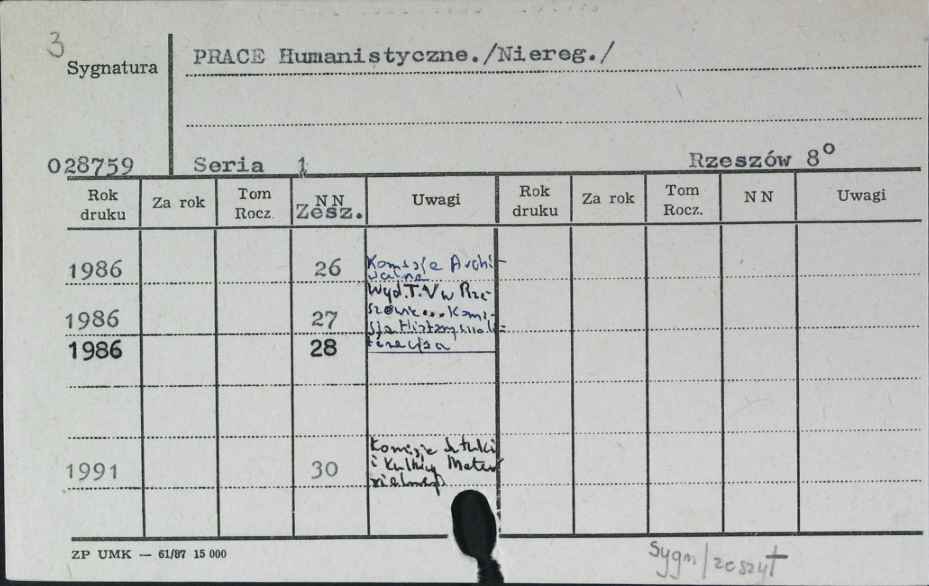 3
Sygnatura PRACE Humanistyczne./Niereg./
028759 Seria 1 Rzeszów 8°
Rok druku Za rok Tom Rocz. NN Zesz. Uwagi Rok druku Za rok Tom Rocz. NN Uwagi
1986 26 Komisja Archi-
walna
Wyd. T.N w Rze-
1986 27 szowie... Komi-
sja Hist
1986 28
Komisja Sztuki
1991 30 i Kultury Mater
ialnej
ZP UMK — 61/87 15 000
Sygn/zeszyt